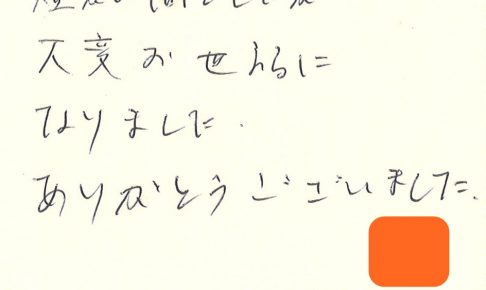 大変お世話に
なりました。
ありがとうございました。